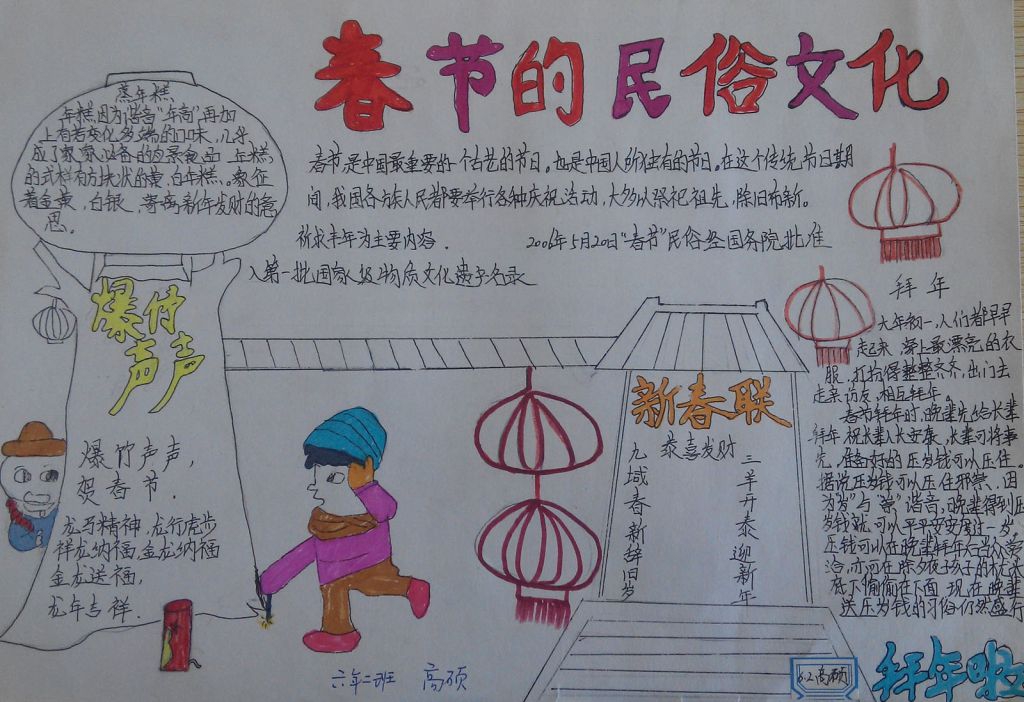 春节的民俗文化
蒸年糕
年糕因为谐音"年高"再加
上有着变化多端的口味,几乎
成了家家必备的应景食品。年糕
的式样有方块状的黄、白年糕。象征
着金黄,白银,寄寓新年发财的意
思。
春节是中国最重要的一个古艺的节日。也是中国人所独有的节日。在这个传统节日期
间,我国各族人民都要举行各种庆祝活动,大多以祭祀祖先,除旧布新。
祈求丰年为主要内容.
2006年5月20日"春节"民俗经国务院批准
入第一批国家级物质文化遗产名录
爆竹
声声
爆竹声声,
贺春节.
龙马精神,龙行虎步
祥龙纳福,金龙纳福
金龙送福,
龙年吉祥.
新春联
恭喜发财
九域春新辞旧岁
三羊开泰迎新年
拜年
大年初一,人们都早早
起来,穿上最漂亮的衣
服,打扮得整整齐齐,出门去
走亲访友,相互拜年。
春节拜年时,晚辈先给长辈
拜年,祝长辈人长安康,长辈可将事
先准备好的压岁钱可以压住。
据说压岁钱可以压住邪祟,因
为"岁"与"祟"谐音,晚辈得到压
岁钱就可以平平安安度过一岁。
压钱可以在晚辈拜年
后当众赏
给,亦可在除夕夜孩子的枕头
底下偷偷在下面,现在晚辈
送压岁钱的习俗仍然盛行
六年二班 高硕
6.2高硕
拜年啦